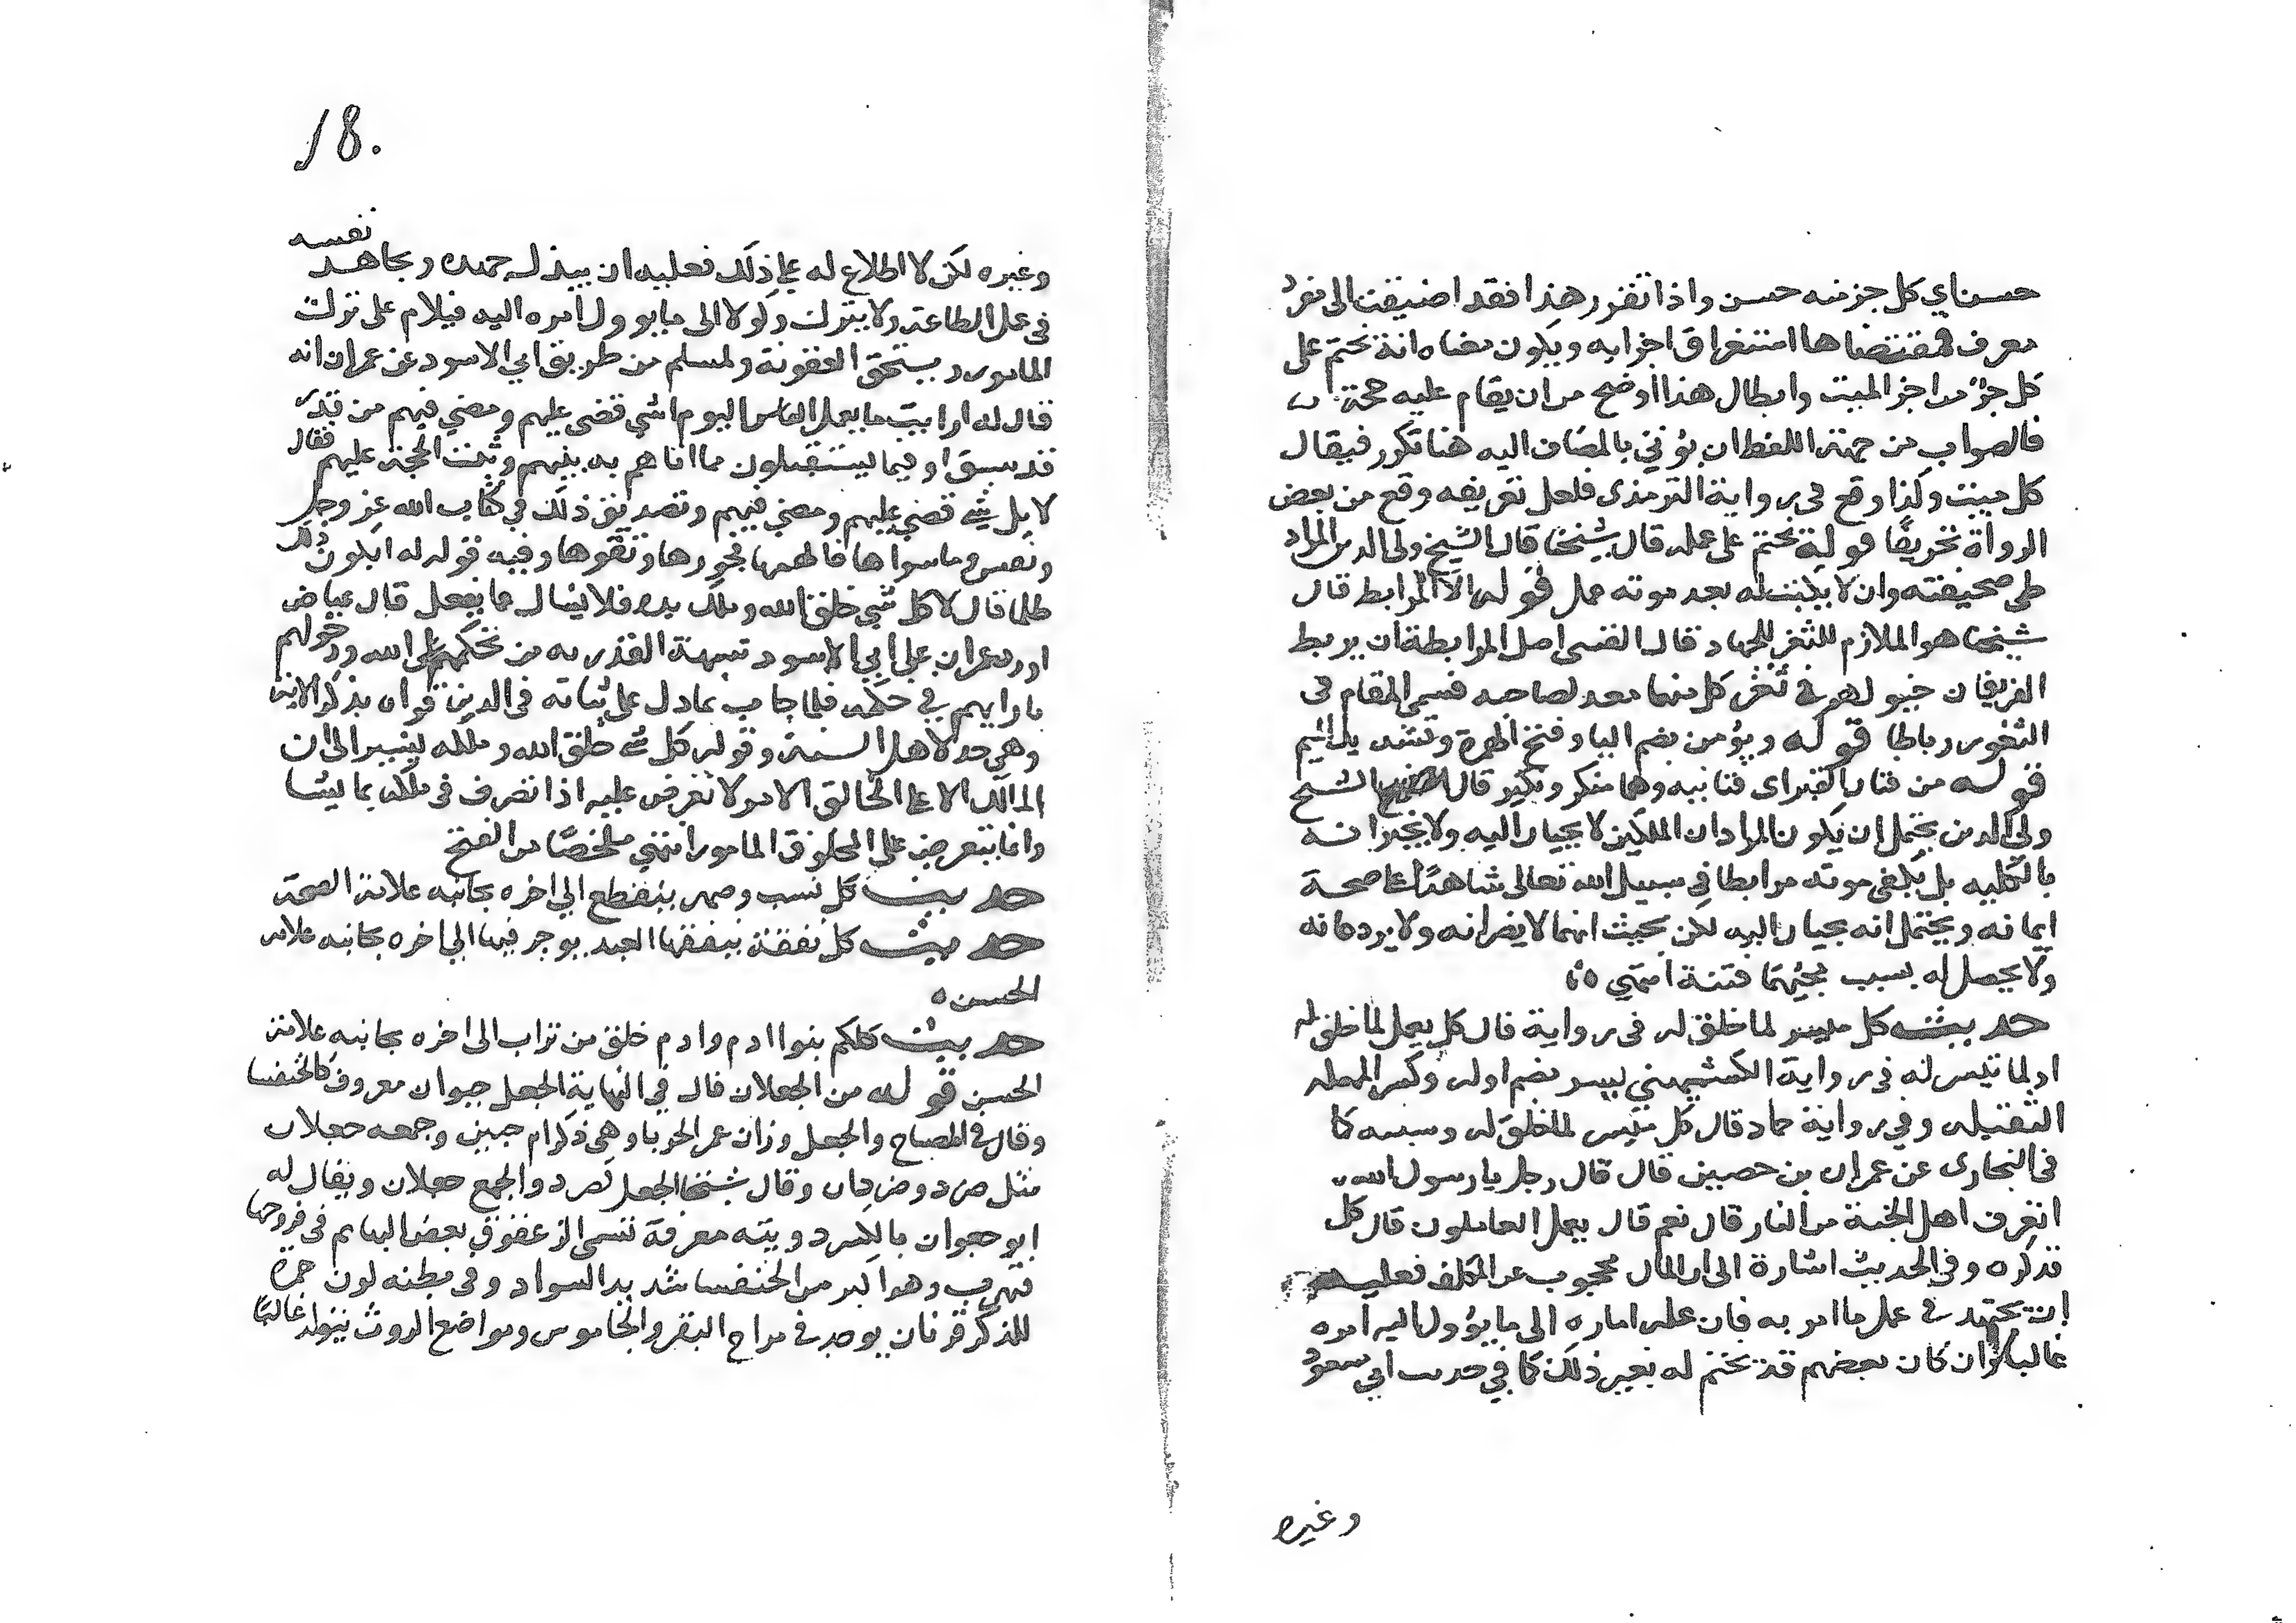 حسن اي كل جز منه حسن واذا تقرر هذا فقد اضيفت الى مفرد
معرف فمقتضاها استغراق اجزايه ويكون معناه انه يختم على
كل جزء من اجزا الميت وابطال هذا اوضح من ان يقام عليه حجة
فالصواب من جهة اللفظ ان يؤتي بالمضاف اليه هنا نكرة فيقال
كل ميت وكذا وقع في رواية الترمذى فلعل تعريفه وقع من بعض
الرواة تحريفا قوله يختم على عمله قال شيخنا قال الشيخ ولى الدين المراد
طي صحيفته وان لا يكتب له بعد موته عمل قوله الا المرابط قال
شيخنا هو الملازم للثغر للجهاد قال القتبى اصل المرابطة ان يربط
الفريقان خيولهم في ثغر كل منهما معد لصاحبه فسمى المقام فى
الثغور رباطا قوله ويؤمن بضم اليا وفتح الهمزة وتشديد الميم
قوله من فتان القبر اى فتانيه وهما منكر ونكير قال الشيخ
ولى الدين يحتمل ان يكون المراد ان الملكين لا يجيان اليه ولا يختبرانه
بالكليه بل يكفى موته مرابطا في سبيل الله تعالى شاهدًا على صحة
ايمانه ويحتمل انه يجيان اليه لكن بحيث انهما لا يضرانه ولا يردعانه
ولا يحصل له بسبب مجيئهما فتنة انتهي
حديث كل ميسر لما خلق له فى رواية قال كل يعمل لما خلق له
او لما تيسر له فى رواية الكشميهني ييسر بضم اوله وكسر المهمله
الثقيله وفي رواية حماد قال كل ميسر لما خلق له وسببه كما
فى البخارى عن عمران بن حصين قال قال رجل يا رسول الله
اتعرف اهل الجنة من النار قال نعم قال يعمل العاملون قال كل
فذكره وفى الحديث اشارة الى ان المال محجوب عن المكلف فعليه
ان يجتهد في عمل ما امر به فان عمله اماره الى ما يؤول اليه امره
غالبا وان كان بعضهم قد يختم له بغير ذلك كما في حديث ابي سعود
وغيره
18.
وغيره لكن لا اطلاع له على ذلك فعليه ان يبذل جهده ويجاهد نفسه
فى عمل الطاعة ولا يترك وكولا الى ما يوول امره اليه فيلام على ترك
المامور ويستحق العقوبة ولمسلم من طريق ابي الاسود عن عمران انه
قال له ارايت ما يعمل الناس اليوم اشي قضى عليهم ومضي فيهم من قدر
قد سبق او فيما يستقبلون مما اتاهم به نبيهم وثبت الحجة عليهم فقال
لا بل شي قضي عليهم ومضي فيهم وتصديق ذلك في كتاب الله عز وجل
ونفس وما سواها فالهمها فجورها وتقواها وفيه قوله له ايكون ذلك
ظلما قال لا كل شي خلق الله وملك يده فلا يسال عما يفعل قال عياض
اورد عمران على ابي الاسود شبهة القدريه من تحكمهم على الله ودخولهم
بارايهم في حكمه فلما اجاب بما دل على ثباته فى الدين قواه بذكر الاية
وهي حد لاهل السنة وقوله كل شي خلق الله وملكه يشير الى ان
المالك الاعلى الخالق الامر لا يعترض عليه اذا تصرف فى ملكه بما يشا
وانما يتعرض على المخلوق المامور انتهي ملخصًا من الفتح
حديث كل نسب وصهر ينقطع الي اخره بجانبه علامة الصحة
حديث كل نفقة ينفقها العبد يوجر فيها الي اخره بجانبه علامة
الحسن
حديث كلكم بنوا ادم وادم خلق من تراب الى اخره بجانبه علامة
الحسن قوله من الجعلان قال في النهاية الجعل حيوان معروف كالخنفسا
وقال فى المصباح والجعل وزان عمر الحربا وهى ذكر ام حبين وجمعه جعلان
مثل صرد وصردان وقال شيخنا الجعل كصرد والجمع جعلان ويقال له
ابو جعران بالكسر دويبة معرفة تسمى الزعقوق بعض البهايم فى فروجها
فتهرب وهو اكبر من الخنفسا شديد السواد وفى بطنه لون حمرة
للذكر قرنان يوجد في مراح البقر والجاموس ومواضع الروث يتولد غالبًا